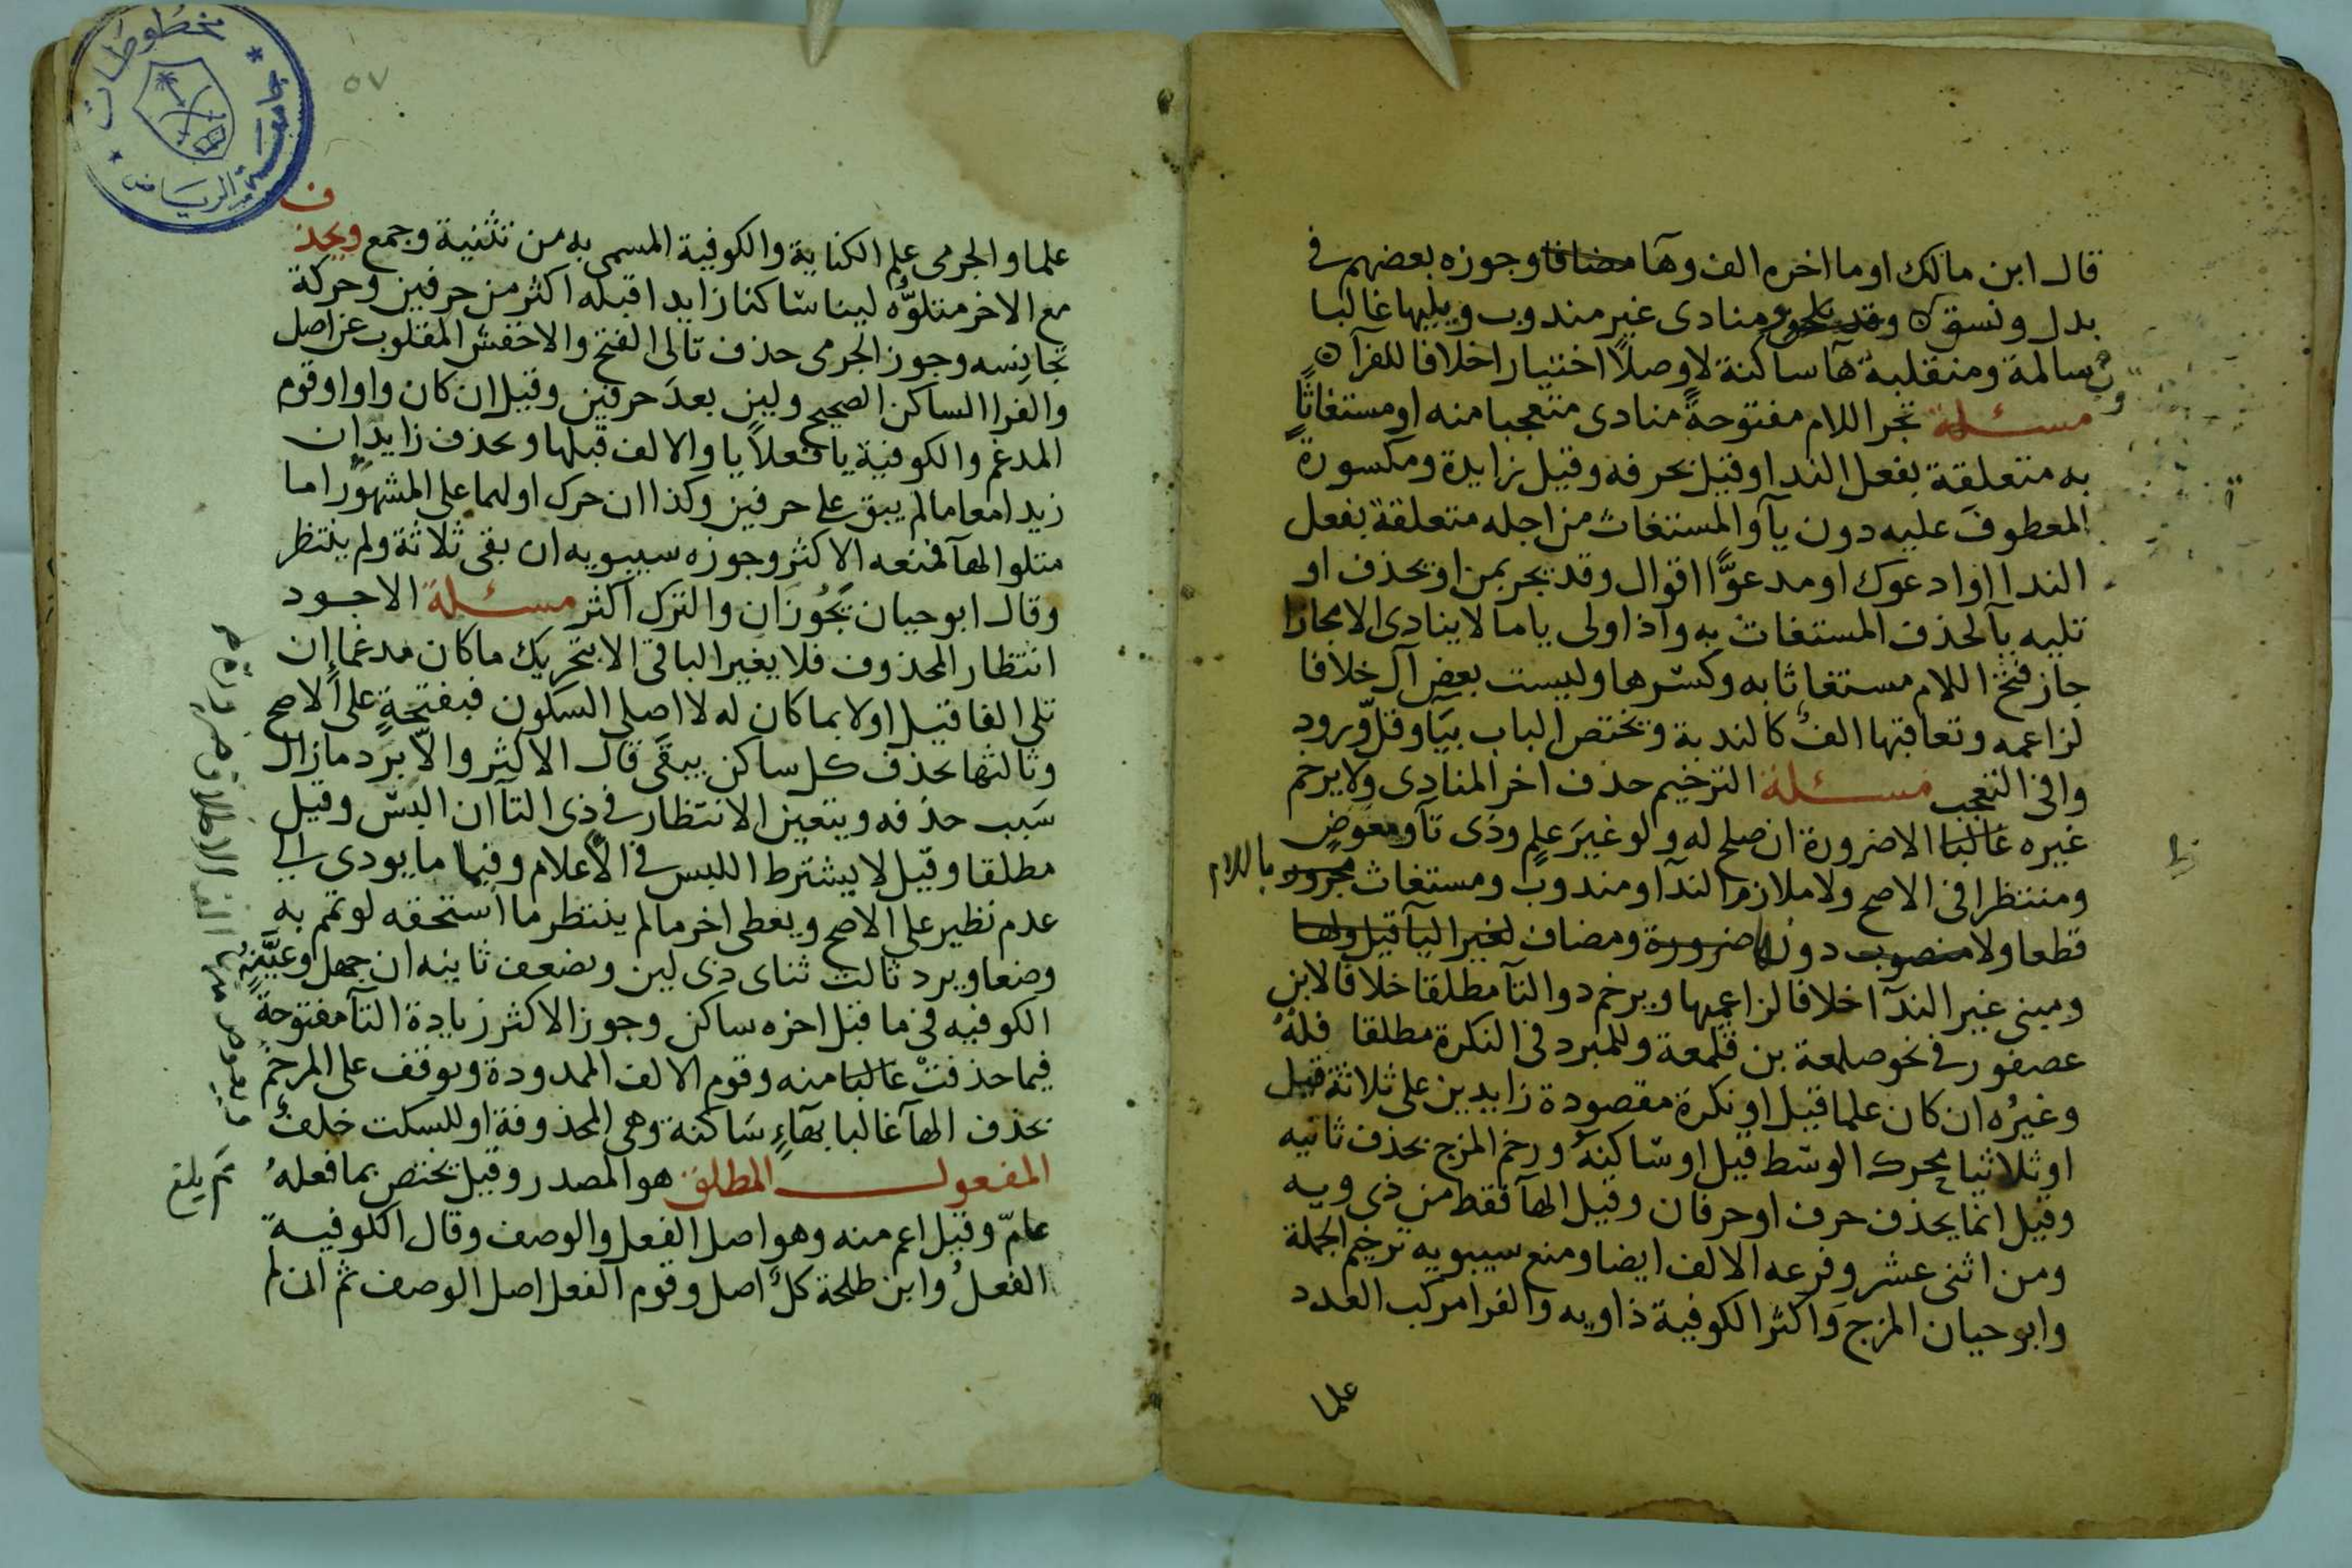 قال ابن مالك او ما اخره الف وهآ مضافا وجوزه بعضهم في
بدل ونسق ومنادى غير مندوب ويليها غالبا
سالمة ومنقلبة هآ ساكنة لا وصلاً اختيارا خلافا للفرآ
مسئلة تجر اللام مفتوحةً منادى متعجبا منه او مستغاثًا
به متعلقة بفعل الندا وقيل بحرفه وقيل زايدة ومكسورة
المعطوف عليه دون يآ والمستغاث من اجله متعلقة بفعل
الندا او ادعوك او مدعوًّا اقوال وقد يجر بمن او يحذف او
تليه يآ لحذف المستغاث به واذا ولى يا ما لا ينادى الا مجازا
جاز فتح اللام مستغاثا به وكسرها وليست بعض آل خلافا
لزاعمه وتعاقبها الف كالندبة وتختص الباب بيَا وقلّ ورود
وا في التعجب مسئلة الترخيم حذف اخر المنادى ولا يرخم
غيره غالبا الا ضرورة ان صلح له ولو غيرَ علمٍ وذى تآ ومعوضٍ
ومنتظرا في الاصح ولا ملازم الندآ ومندوب ومستغاث مجرور باللام
قطعا ولا منصوب دونها ضرورة ومضاف لغير اليآ قيل ولها
ومبنى غير الندآ خلافا لزاعميها ويرخم ذو التآ مطلقا خلافا لابن
عصفور في نحو صلمعة بن قلمعة وللمبرد في النكرة مطلقا فلة
وغيرُه ان كان علما قيل او نكرة مقصودة زايدين على ثلاثة قيل
او ثلاثيا محرك الوسط قيل او ساكنه ورخم المزج بحذف ثانيه
وقيل انما يحذف حرف او حرفان وقيل الهآ فقط من ذى ويه
ومن اثنى عشر وفرعه الالف ايضا ومنع سيبويه ترخيم الجملة
وابو حيان المزج واكثر الكوفية ذا ويه والفرا مركب العدد
علما
٥٧
مخطوطات
جامعة الرياض
علما والجرمى علم الكناية والكوفية المسمى به من تثنية وجمع ويحذف
مع الاخر متلوّه لينا ساكنا زايدا قبله اكثر من حرفين وحركة
تجانسه وجوز الجرمى حذف تالى الفتح والاخفش المقلوب عن اصل
والفرا الساكن الصحيح ولين بعد حرفين وقيل ان كان واوا وقوم
المدغم والكوفية يا فعلايا والالف قبلها ويحذف زايدان
زيدا معا مالم يبق على حرفين وكذا ان حرك اولهما على المشهور اما
متلو الهآ فمنعه الاكثر وجوزه سيبويه ان بقى ثلاثة ولم ينتظر
وقال ابو حيان يَجُوزان والترك اكثر مسئلة الاجود
انتظار المحذوف فلا يغير الباقى الا بتحريك ما كان مدغما ان
تلى الفا قيل او لا بما كان له لا اصلى السكون فبفتحةٍ على الاصح
وثالثها يحذف كل ساكن يبقى قال الاكثر والّا برد مازال
سَبب حذفه ويتعين الانتظار في ذى التآ ان البس وقيل
مطلقا وقيل لا يشترط اللبس في الاعلام وفيما ما يودى الى
عدم نظير على الاصح ويعطى اخر مالم ينتظر ما استحقه لو تمم به
وضعا ويرد ثالث ثناى ذى لين ويضعف ثانيه ان جهل وعَيَّنه
الكوفيه في ما قبل اخره ساكن وجوز الاكثر زيادة التآ مفتوحة
فيما حذفتْ غالبا منه وقوم الالف الممدودة ويوقف على المرخم
بحذف الهآ غالبا بهآءٍ سَاكنة وهى المحذوفة او للسكت خلف
المفعول المطلق هو المصدر وقيل يختص بما فعلهُ
عامّ وقيل اعم منه وهو اصل الفعل والوصف وقال الكوفية
الفعلُ وابن طلحة كلٌّ اصل وقوم الفعل اصل الوصف ثم ان لم
ثم بلغ